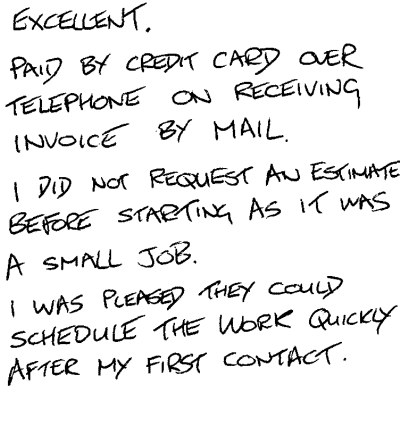 EXCELLENT.
PAID BY CREDIT CARD OVER
TELEPHONE ON RECEIVING
INVOICE BY MAIL.
I DID NOT REQUEST AN ESTIMATE
BEFORE STARTING AS IT WAS
A SMALL JOB.
I WAS PLEASED THEY COULD
SCHEDULE THE WORK QUICKLY
AFTER MY FIRST CONTACT.